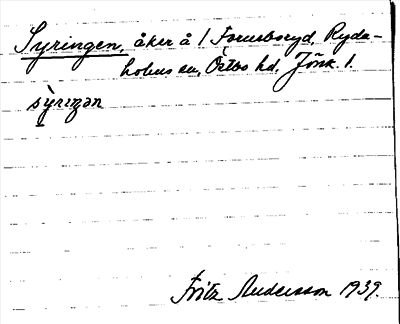 Syringen, åker å 1 Forsaboryd, Ryda-
holms sn, Östbo hd, Jönk. l.
sỳriŋən
Fritz Andersson 1939.